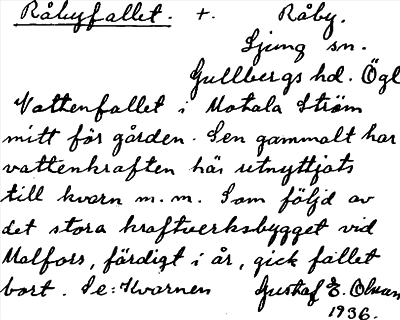 Råbyfallet. +. Råby.
Ljung sn.
Gullbergs hd. Ögl
Vattenfallet i Motala Ström
mitt för gården. Sen gammalt har
vattenkraften här utnyttjats
till kvarn m.m. Som följd av
det stora kraftverksbygget vid
Malfors, färdigt i år, gick fallet
bort. Se: Kvarnen Gustaf E. Olsson
1936.